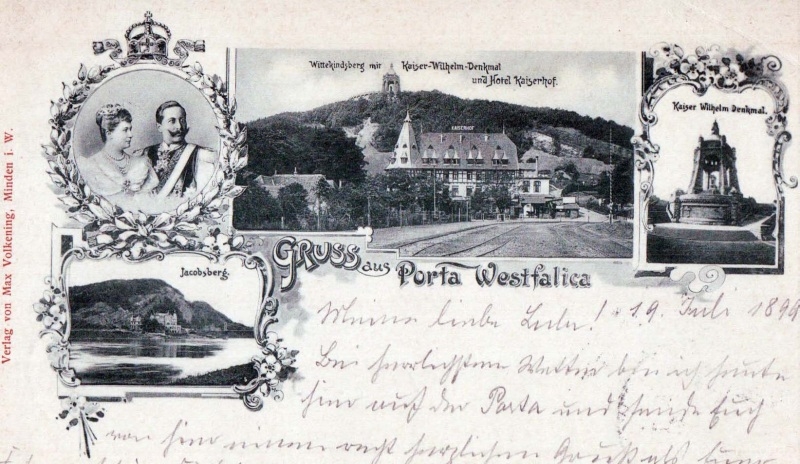 Wittekindsberg mit Kaiser-Wilhelm-Denkmal
und Hotel Kaiserhof.
KAISERHOF
Kaiser Wilhelm Denkmal.
Jacobsberg.
Gruss aus Porta Westfalica
Verlag von Max Volkening, Minden i. W.
Meine liebe ! 19 Juli 189
Bei herrlichstem Wetter bin ich heute
hier auf der Porta und sende Euch
von hier einen recht herzlichen Gruß als